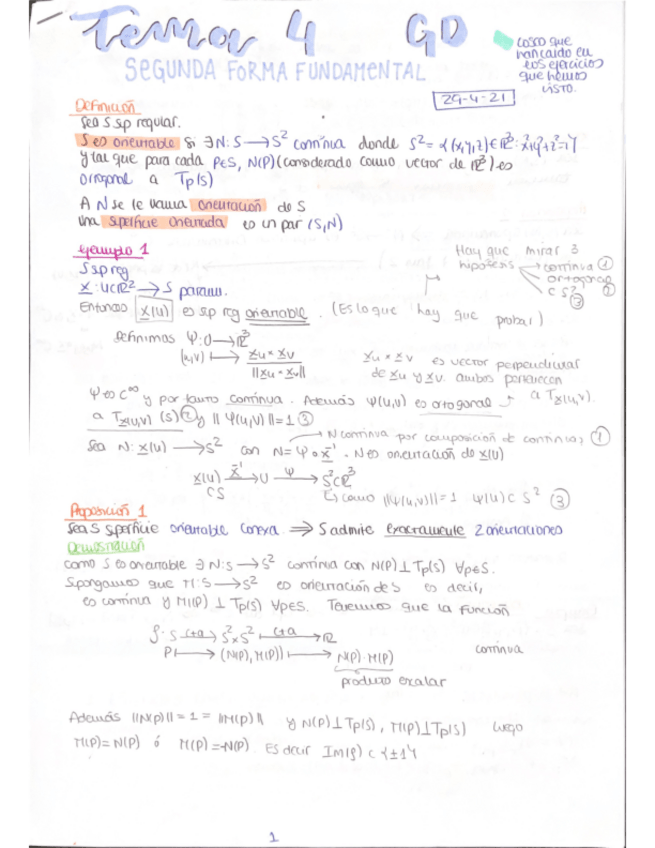 Tema 4 GD
SEGUNDA FORMA FUNDAMENTAL
cosas que
han caído en
los ejercicios
que hemos
visto.
29-4-21
Definición
Sea S sup regular.
S es orientable si ∃N: S → S² continua donde S² = {(x,y,z) ∈ ℝ³: x²+y²+z²=1}
y tal que para cada p∈S, N(p) (considerado como vector de ℝ³) es
ortogonal a Tp(S)
A N se le llama orientación de S
Una superficie orientada es un par (S,N)
Ejemplo 1
S sup reg
X: U⊂ℝ² → S param.
Hay que mirar 3
hipótesis → continua ①
ortogonal ②
⊂ S² ③
Entonces X(U) es sup reg orientable. (Es lo que hay que probar)
Definimos Ψ: U → ℝ³
(u,v) ↦ Xu × Xv / ||Xu × Xv||
Xu × Xv es vector perpendicular
de Xu y Xv. ambos pertenecen
a Tx(u,v).
Ψ es C∞ y por tanto continua. Además Ψ(u,v) es ortogonal
a Tx(u,v) (S) ② y ||Ψ(u,v)||=1 ③
→ N continua por composición de continuas ①
Sea N: X(U) → S² con N = Ψ ∘ X⁻¹. N es orientación de X(U)
X(U) X⁻¹→ U Ψ→ S²⊂ℝ³
⊂ S
Es como ||Ψ(u,v)||=1 Ψ(U) ⊂ S² ③
Proposición 1
Sea S superficie orientable conexa ⇒ S admite exactamente 2 orientaciones
Demostración
como S es orientable ∃ N: S → S² continua con N(p) ⊥ Tp(S) ∀p∈S.
Supongamos que M: S → S² es orientación de S es decir,
es continua y M(p) ⊥ Tp(S) ∀p∈S. Tenemos que la función
f: S cta→ S²×S² cta→ ℝ
P ↦ (N(P), M(P)) ↦ N(P)·M(P)
continua
producto escalar
Además ||N(P)|| = 1 = ||M(P)|| y N(P) ⊥ Tp(S), M(P) ⊥ Tp(S) luego
M(P)=N(P) ó M(P)=-N(P). Es decir Im(f) ⊂ {±1}
1